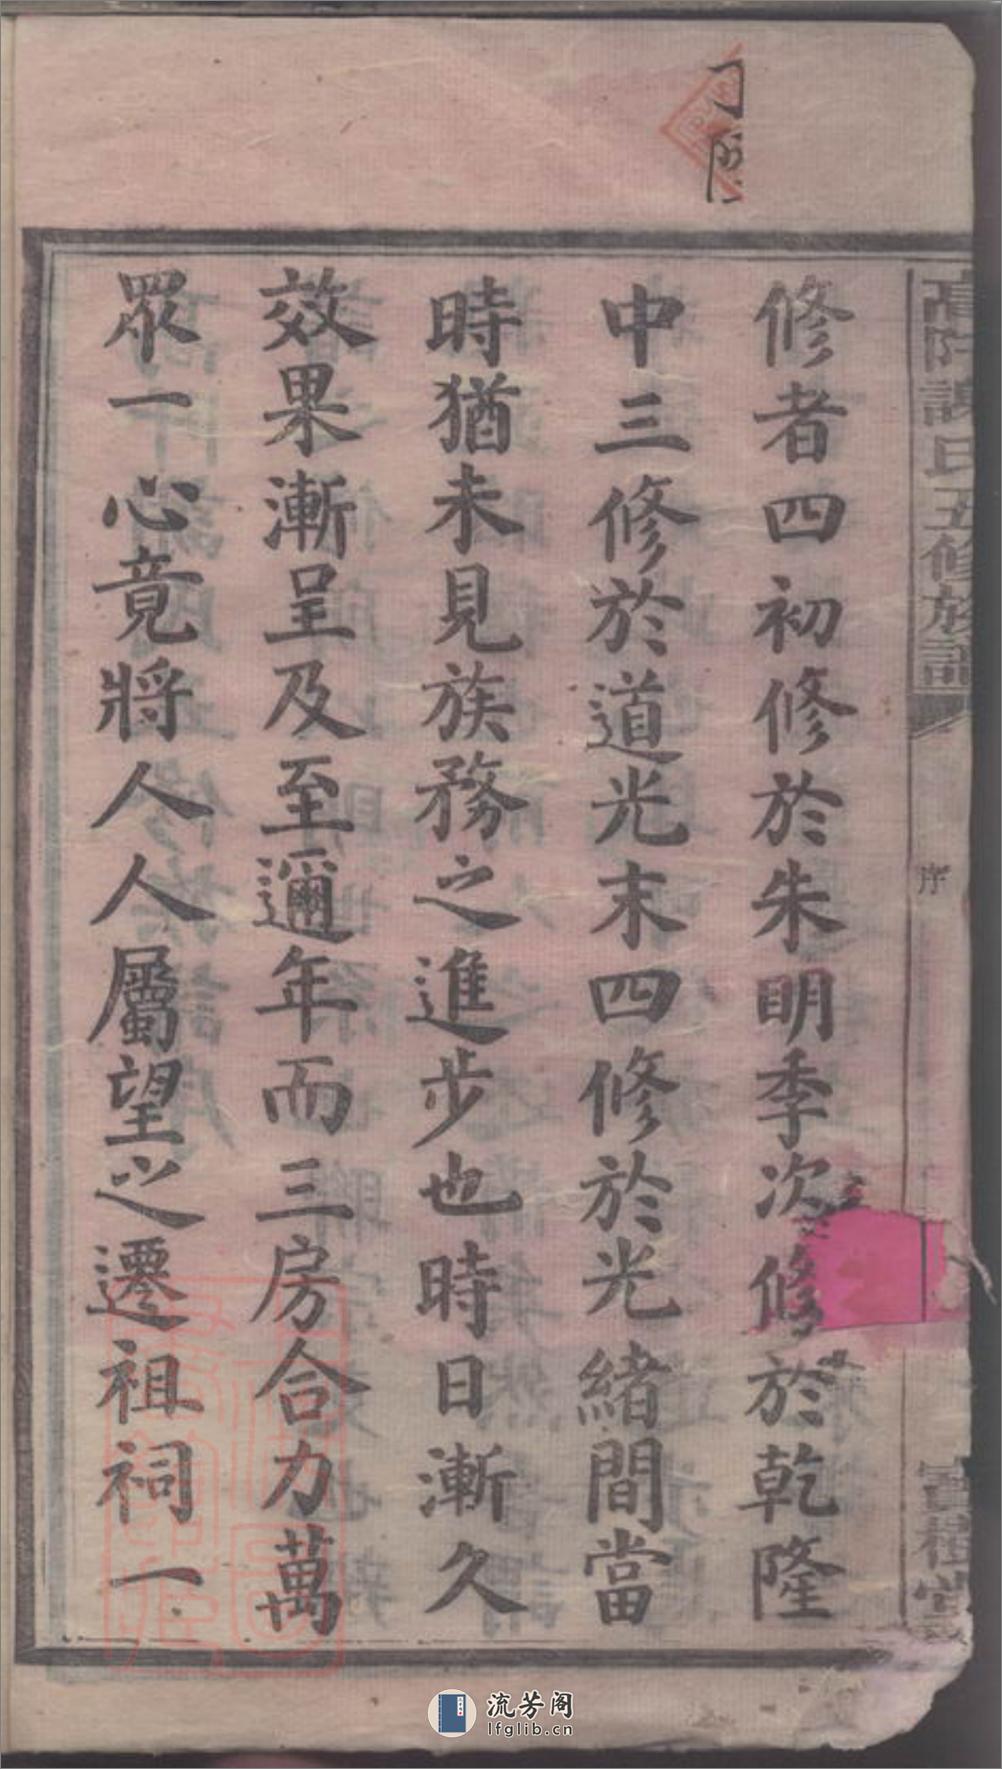 高阡謝氏五修族譜
序
寶樹堂
修者四初修於朱明季次修於乾隆
中三修於道光末四修於光緒間當
時猶未見族務之進步也時日漸久
效果漸呈及至邇年而三房合力萬
眾一心竟將人人屬望之遷祖祠一
流芳阁
lfglib.cn